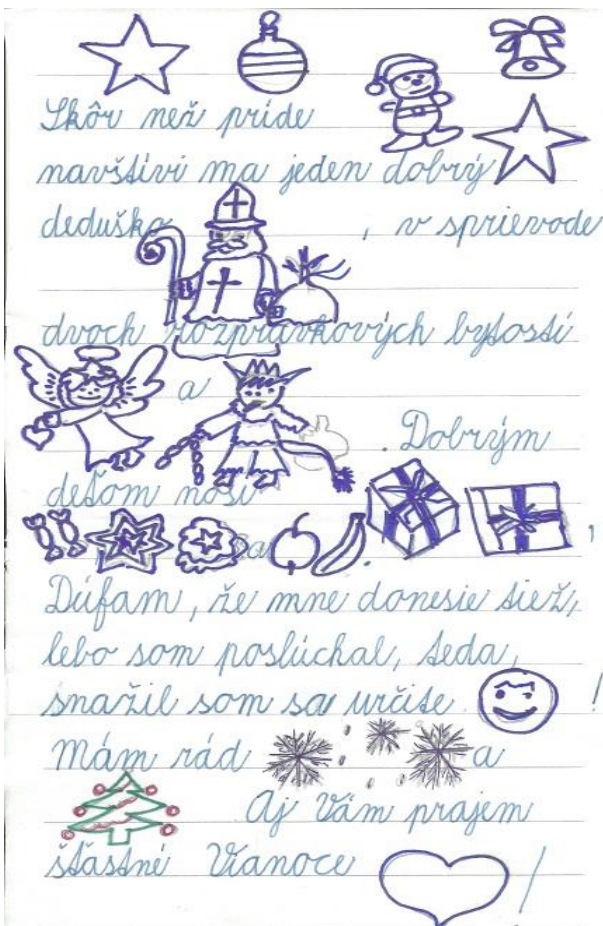 Skôr než príde
navštívi ma jeden dobrý
deduško , v sprievode
dvoch rozprávkových bytostí
a . Dobrým
deťom nosí
, a .
Dúfam, že mne donesie tiež,
lebo som poslúchal, teda,
snažil som sa určite !
Mám rád a
Aj Vám prajem
šťastné Vianoce !